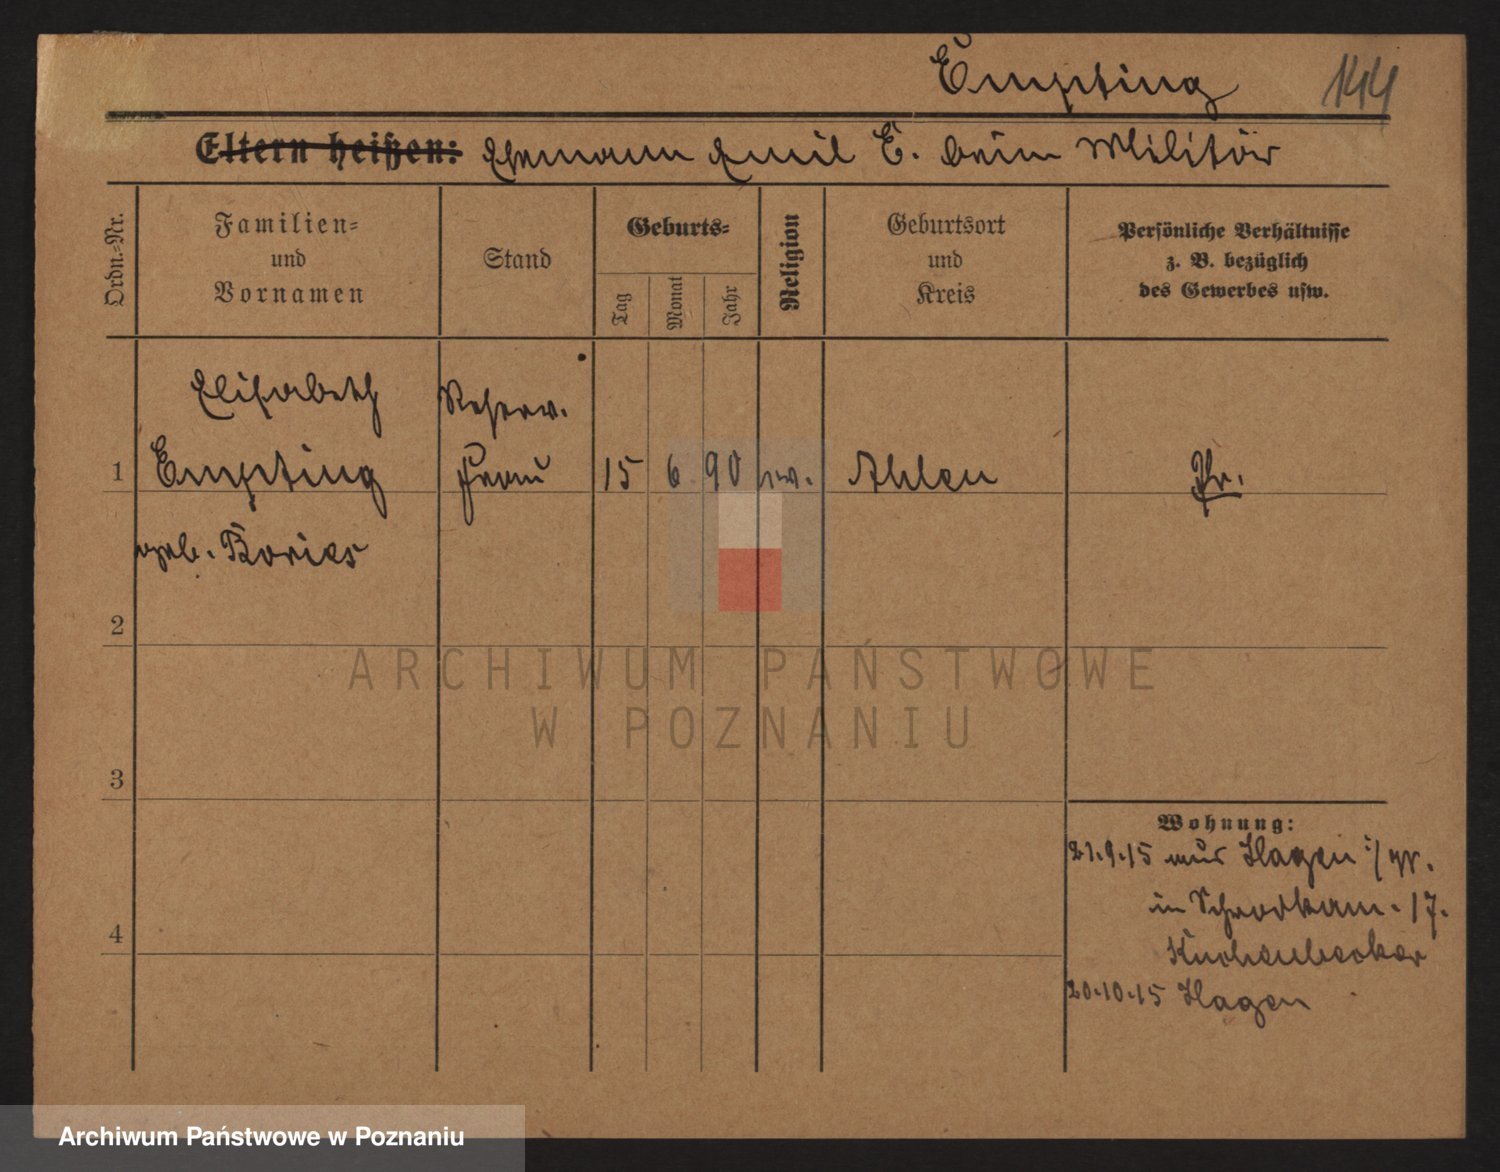 Empting 144
Eltern heißen: Ehemann Emil E. beim Militär
Ordn.=Nr.
Familien=
und
Vornamen
Stand
Geburts=
Tag
Monat
Jahr
Religion
Geburtsort
und
Kreis
Persönliche Verhältnisse
z. B. bezüglich
des Gewerbes usw.
Elisabeth Reserv.
1 Empting Frau 15 6 90 Ahlen Pr.
geb. Bories
2
ARCHIWUM PAŃSTWOWE
W POZNANIU
3
Wohnung:
21.9.15 aus Hagen i/W.
in Schrodkam. 17.
4
Kuchenbecker
20.10.15 Hagen
Archiwum Państwowe w Poznaniu